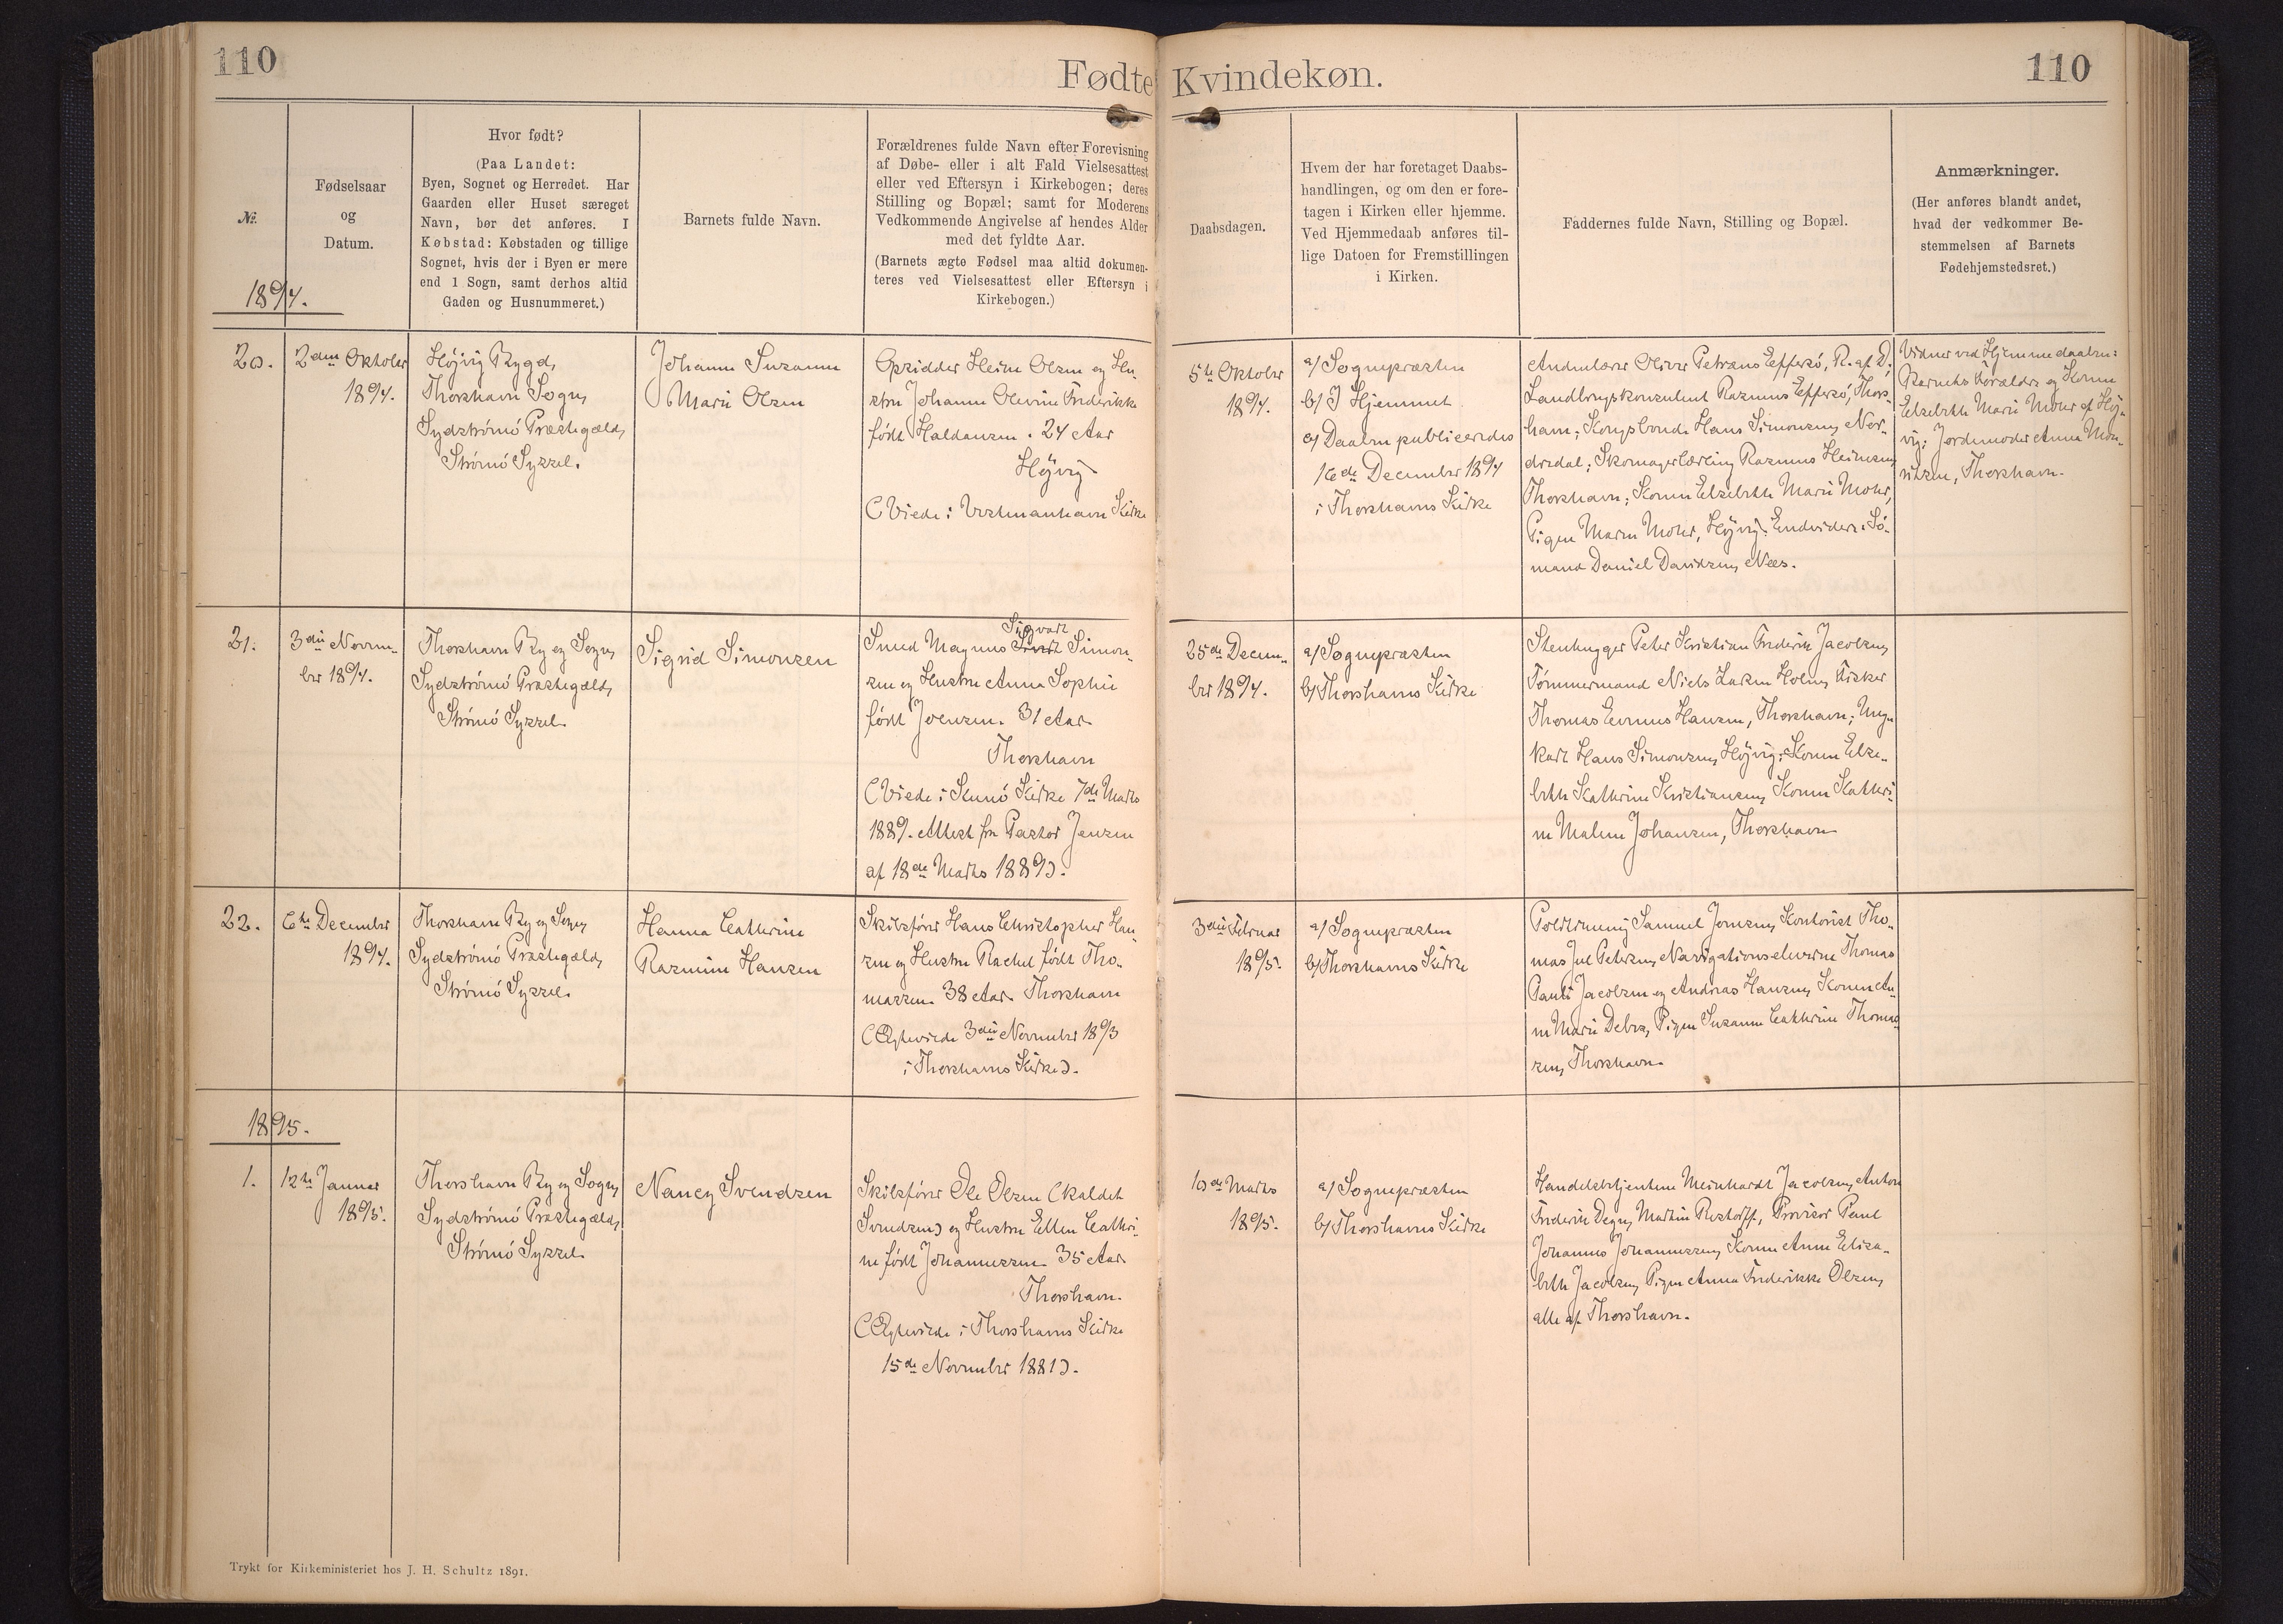 110
Fødte Kvindekøn.
110
№.
Fødselsaar
og
Datum.
Hvor født?
(Paa Landet:
Byen, Sognet og Herredet. Har
Gaarden eller Huset særeget
Navn, bør det anføres. I
Købstad: Købstaden og tillige
Sognet, hvis der i Byen er mere
end 1 Sogn, samt derhos altid
Gaden og Husnummeret.)
Barnets fulde Navn.
Forældrenes fulde Navn efter Forevisning
af Døbe- eller i alt Fald Vielsesattest
eller ved Eftersyn i Kirkebogen; deres
Stilling og Bopæl; samt for Moderens
Vedkommende Angivelse af hendes Alder
med det fyldte Aar.
(Barnets ægte Fødsel maa altid dokumen-
teres ved Vielsesattest eller Eftersyn i
Kirkebogen.)
Daabsdagen.
Hvem der har foretaget Daabs-
handlingen, og om den er fore-
tagen i Kirken eller hjemme.
Ved Hjemmedaab anføres til-
lige Datoen for Fremstillingen
i Kirken.
Faddernes fulde Navn, Stilling og Bopæl.
Anmærkninger.
(Her anføres blandt andet,
hvad der vedkommer Be-
stemmelsen af Barnets
Fødehjemstedsret.)
1894.
20.
2den Oktober
1894.
Højvig Bygd,
Thorshavn Sogn,
Sydstrømø Præstegæld,
Strømø Syssel.
Johanne Susanne
Marie Olsen
Opsidder Heine Olsen og Hu-
stru Johanne Olevine Frederikke
født Haldansen. 24 Aar
Højvig
(Viede i Vestmanhavn Kirke
5te Oktober
1894.
a/ Sognepræsten
b/ I Hjemmet
c/ Daaben publiceredes
16de December 1894
i Thorshavns Kirke
Andenlærer Oliver Petræus Effersø, R. af D.
Landbrugskonsulent Rasmus Effersø, Thors-
havn; Kongsbonde Hans Simonsen, Nor-
dredal; Skomagerlærling Rasmus Heinesen,
Thorshavn; Konen Elsebeth Marie Mohr,
Pigen Maren Mohr, Højvig. Endvidere: Sø-
mand Daniel Davidsen, Næs.
Vidner ved Hjemmedaaben:
Barnets Forældre og Konen
Elsebeth Marie Mohr af Høj-
vig; Jordemoder Anna Mou-
ritsen, Thorshavn.
21.
3die Novem-
ber 1894.
Thorshavn By og Sogn,
Sydstrømø Præstegæld,
Strømø Syssel.
Sigrid Simonsen
Sigvart
Smed Magnus Simon-
sen og Hustru Anna Sophie
født Joensen. 31 Aar
Thorshavn
(Viede i Kunø Kirke 7de Marts
1889. Attest fra Pastor Jensen
af 18de Marts 1889).
25de Decem-
ber 1894.
a/ Sognepræsten
b/ Thorshavns Kirke
Stenhugger Peter Kristian Frederik Jacobsen,
Tømmermand Niels Larsen Holm, Fisker
Thomas Evenius Hansen, Thorshavn; Ung-
karl Hans Simonsen, Højvig; Konen Else-
beth Kathrine Kristiansen, Konen Kathri-
ne Malene Johansen, Thorshavn
22.
6te December
1894.
Thorshavn By og Sogn,
Sydstrømø Præstegæld,
Strømø Syssel.
Hanna Cathrine
Rasmine Hansen
Skibsfører Hans Christopher Han-
sen og Hustru Rachel født Tho-
massen. 38 Aar. Thorshavn
(Ægteviede 3die November 1893
i Thorshavns Kirke).
3die Februar
1895.
a/ Sognepræsten
b/ Thorshavns Kirke
Samuel Joensen, Kontorist Tho-
mas Juel Petersen, Navigationseleverne Thomas
Pauli Jacobsen og Andreas Hansen, Konen An-
ne Marie Debes, Pigen Susanne Cathrine Thomas-
sen, Thorshavn.
1895.
1.
12te Januar
1895.
Thorshavn By og Sogn,
Sydstrømø Præstegæld,
Strømø Syssel.
Nancy Svendsen
Skibsfører Ole Olsen (kaldet
Svendsen) og Hustru Ellen Cathri-
ne født Johannessen. 35 Aar
Thorshavn.
(Ægteviede i Thorshavns Kirke
15de November 1881).
10de Marts
1895.
a/ Sognepræsten
b/ Thorshavns Kirke
Handelsbetjentene Meinhardt Jacobsen, Anton
Frederik Degn, Martin Restorff, Provisor Poul
Johannes Johannessen, Konen Anne Elisa-
beth Jacobsen, Pigen Anna Frederikke Olsen,
alle af Thorshavn.
Trykt for Kirkeministeriet hos J. H. Schultz 1891.